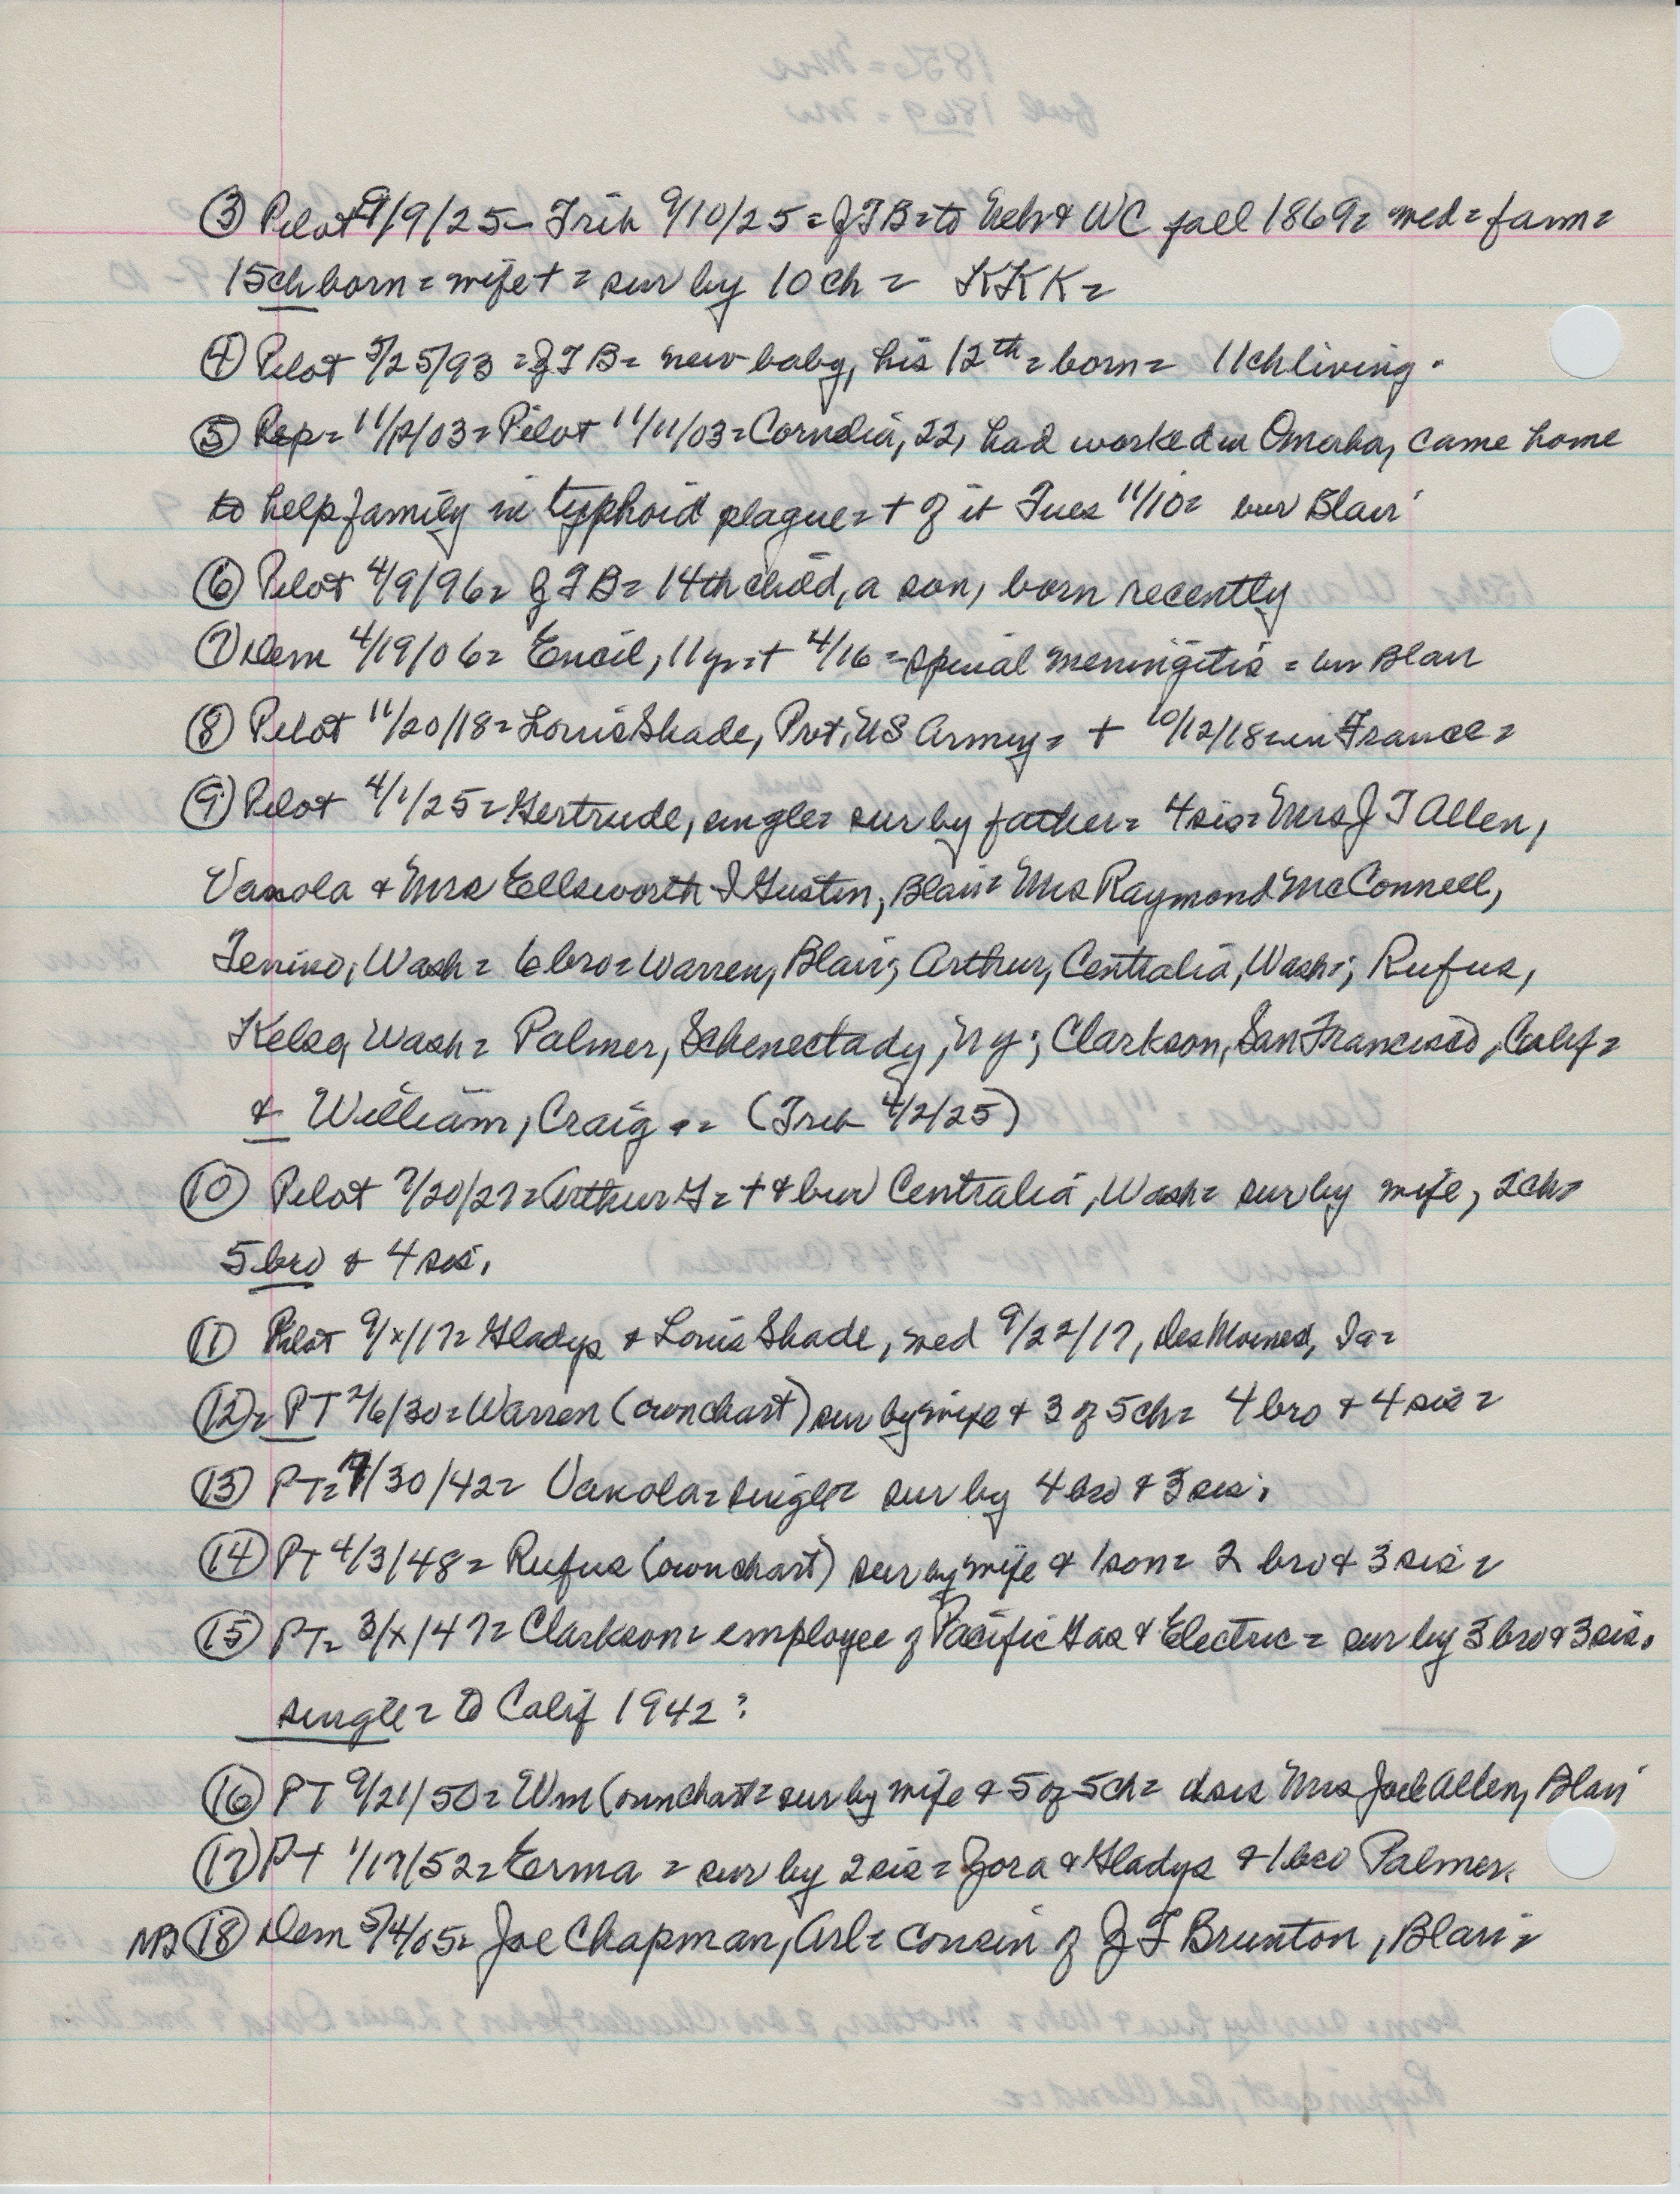 ③ Pilot 9/9/25 = Trib 9/10/25 = JTB = to Neb & WC fall 1869 = med = farm =
15 ch born = wife + = sur by 10 ch = KKK =
④ Pilot 5/25/93 = JTB = new baby, his 12th = born = 11 ch living.
⑤ Rep = 11/12/03 = Pilot 11/11/03 = Cornelia, 22, had worked in Omaha, came home
to help family in typhoid plague = + of it Tues 11/10 = bur Blair
⑥ Pilot 4/9/96 = JTB = 14th child, a son, born recently
⑦ Dem 4/19/06 = Encil, 11 yr = + 4/16 = spinal meningitis = bur Blair
⑧ Pilot 11/20/18 = Louis Shade, Pvt, US Army = + 10/12/18 = in France =
⑨ Pilot 4/1/25 = Gertrude, single = sur by father = 4 sis = Mrs J T Allen,
Vanola & Mrs Ellsworth I Gustin, Blair = Mrs Raymond McConnell,
Tenino, Wash = 6 bro = Warren, Blair; Arthur, Centralia, Wash; Rufus,
Kelso, Wash = Palmer, Schenectady, NY; Clarkson, San Francisco, Calif =
& William, Craig. = (Trib 4/2/25)
⑩ Pilot 7/20/27 = Arthur G = + & bur Centralia, Wash = sur by wife, 2 ch =
5 bro & 4 sis.
⑪ Pilot 9/x/17 = Gladys & Louis Shade, med 9/22/17, Des Moines, Ia =
⑫ = PT 2/6/30 = Warren (own chart) sur by wife & 3 of 5 ch = 4 bro & 4 sis =
⑬ PT = 7/30/42 = Vanola = single = sur by 4 bro & 3 sis.
⑭ PT 4/3/48 = Rufus (own chart) sur by wife & 1 son = 2 bro & 3 sis =
⑮ PT = 3/x/47 = Clarkson = employee of Pacific Gas & Electric = sur by 3 bro & 3 sis.
single = to Calif 1942 =
⑯ PT 9/21/50 = Wm (own chart = sur by wife & 5 of 5 ch = sis Mrs Jack Allen, Blair
⑰ PT 1/17/52 = Erma = sur by 2 sis = Zora & Gladys & 1 bro Palmer.
NB ⑱ Dem 5/4/05 = Joe Chapman, Arl = cousin of J T Brunton, Blair =